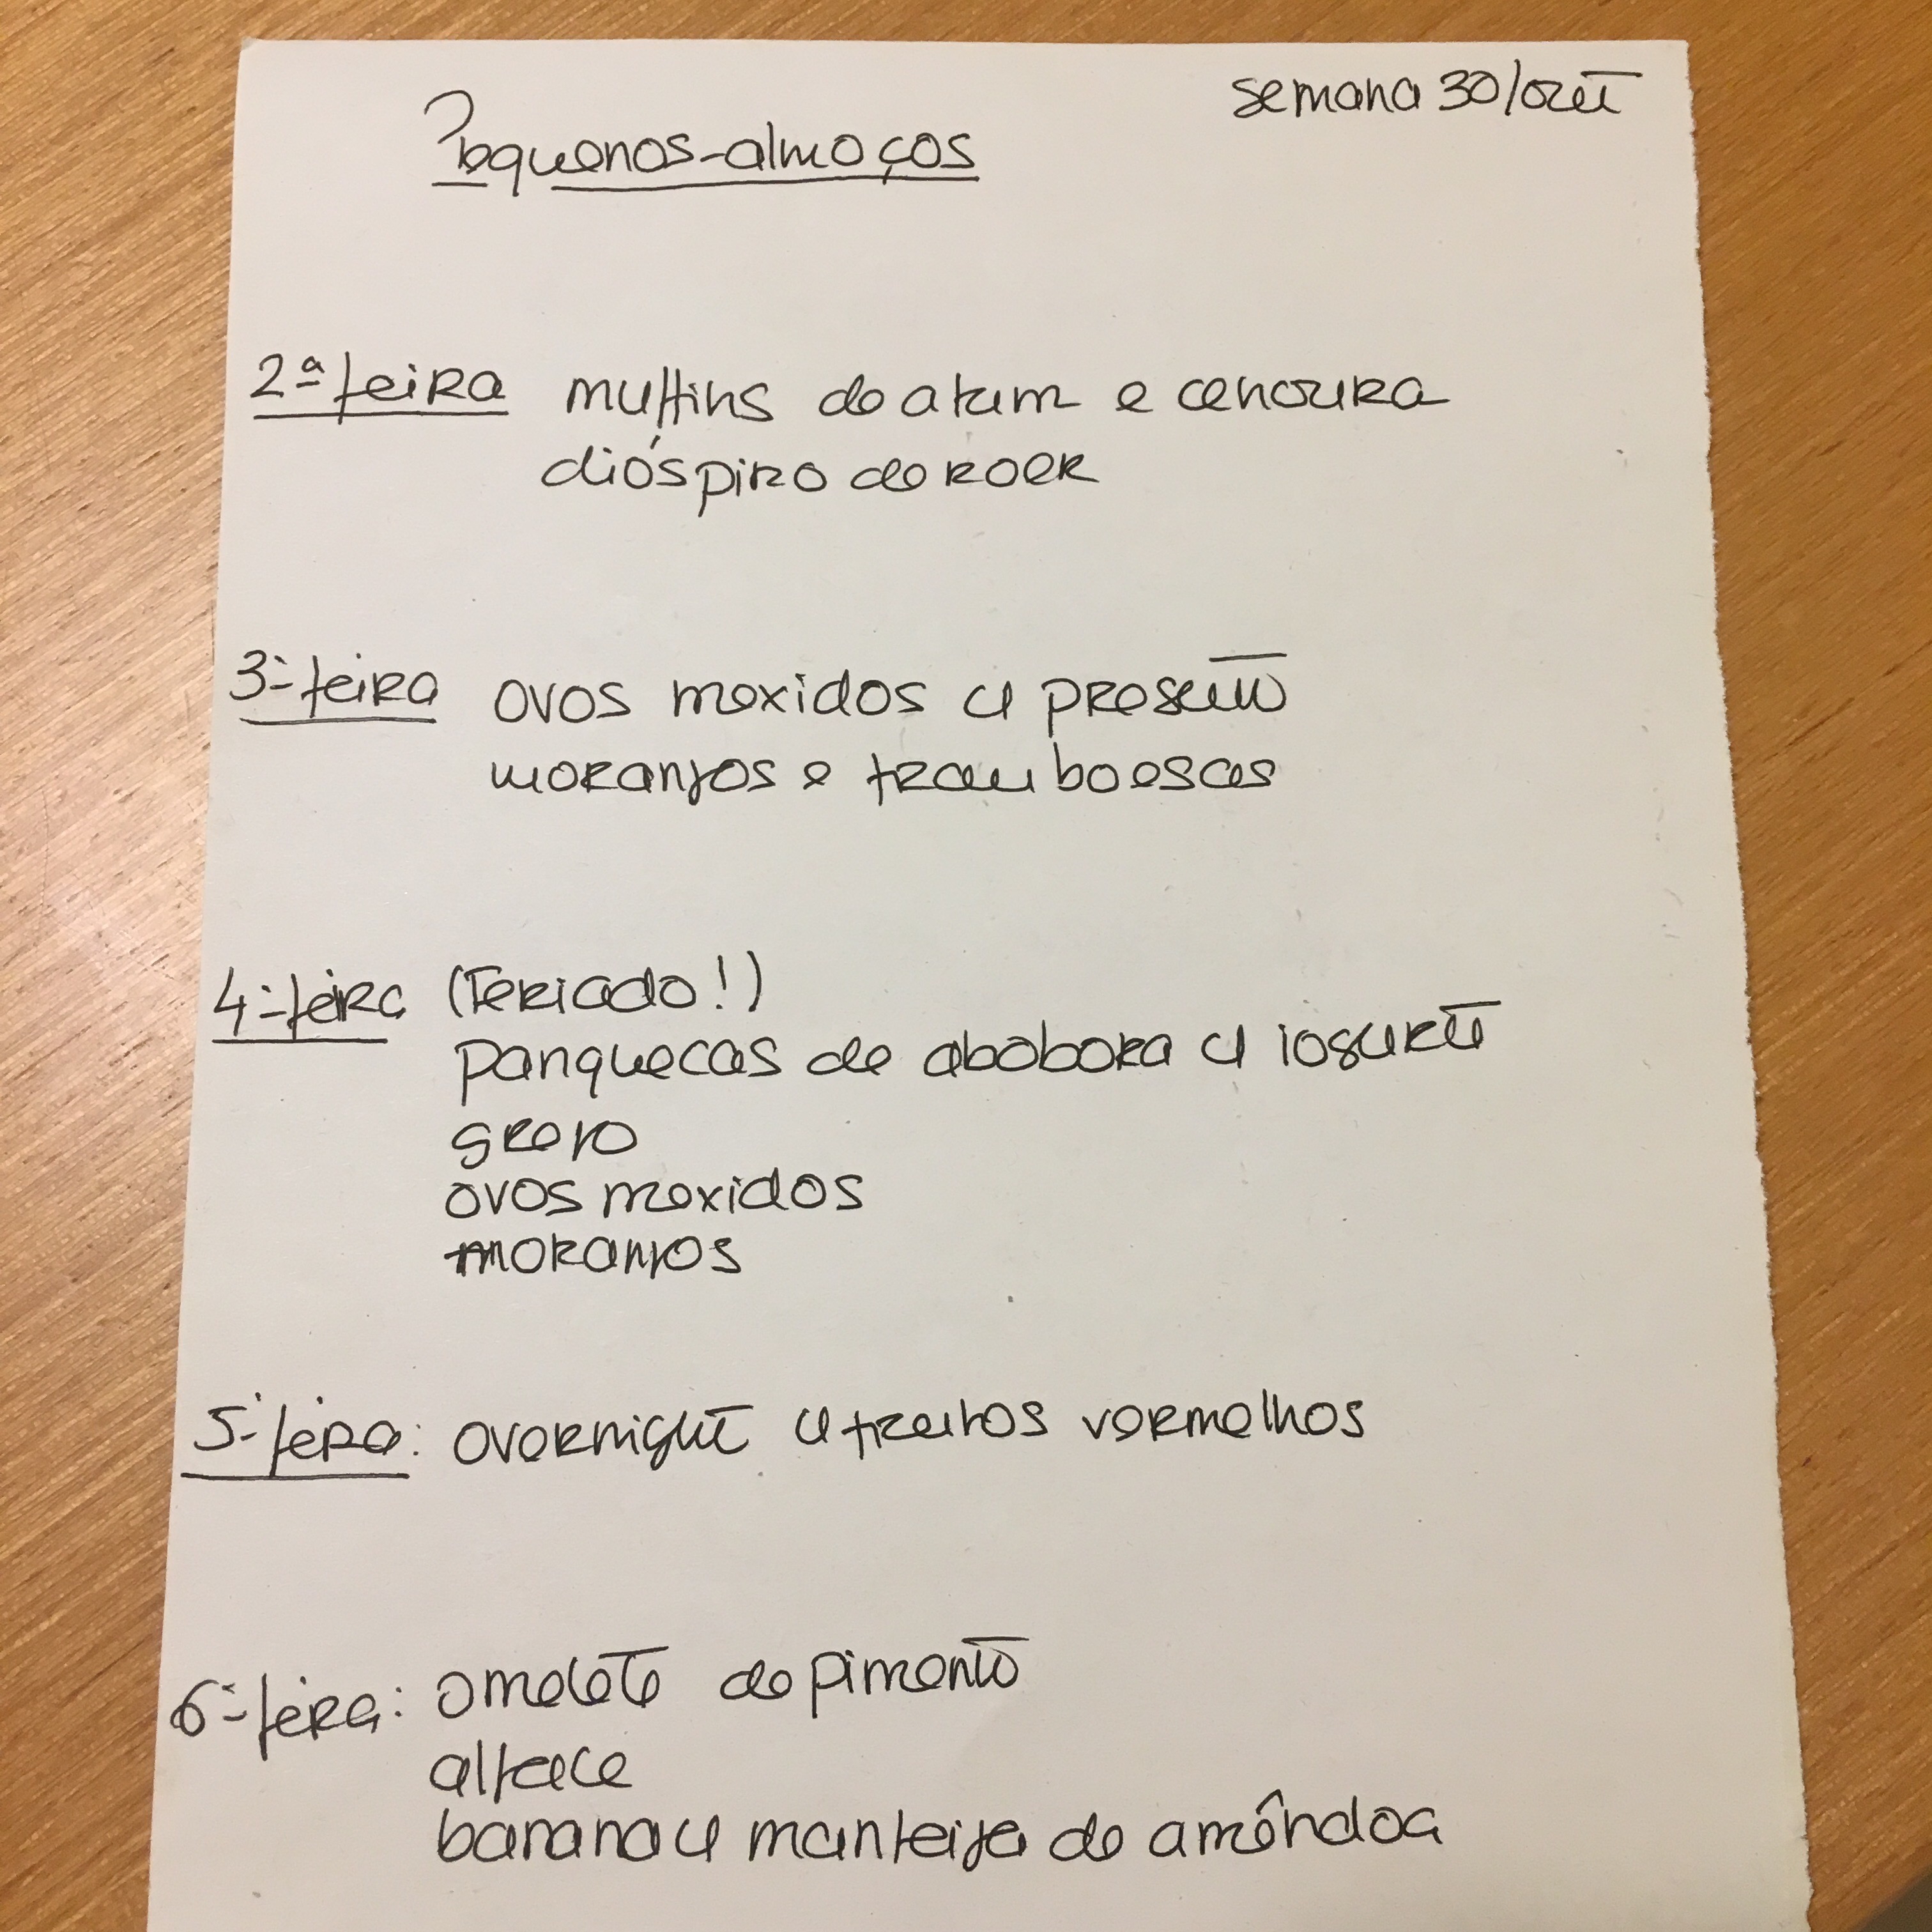 semana 30/out
Pequenos-almoços
2ª feira muffins de atum e cenoura
dióspiro de roer
3ª feira ovos mexidos c/ presunto
morangos e framboesas
4ª feira (Feriado!)
panquecas de abobora c/ iogurte
grego
ovos mexidos
morangos
5ª feira: overnight c/ frutos vermelhos
6ª feira: omelete de pimento
alface
banana c/ manteiga de amêndoa